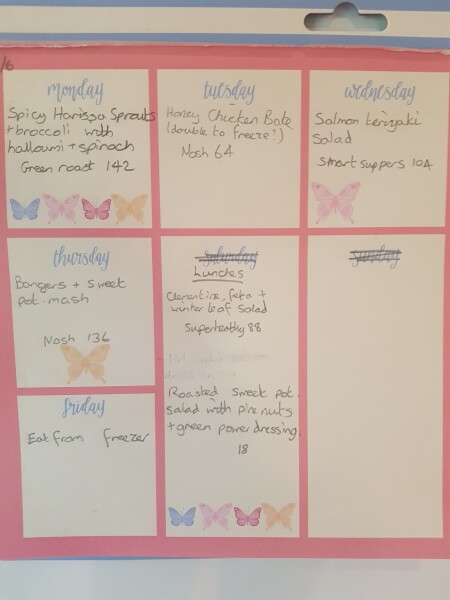 /6
monday
Spicy Harissa Sprouts
+ broccoli with
halloumi + spinach
Green roast 142
tuesday
Honey Chicken Bake
(double to freeze?)
Nosh 64
wednesday
Salmon teriyaki
Salad
Smart suppers 104
thursday
Bangers + sweet
pot. mash
Nosh 136
friday
Eat from freezer
saturday
Lunches
Clementine, feta +
winter leaf salad
Superhealthy 88
Roasted sweet pot.
salad with pine nuts
+ green power dressing.
18
sunday